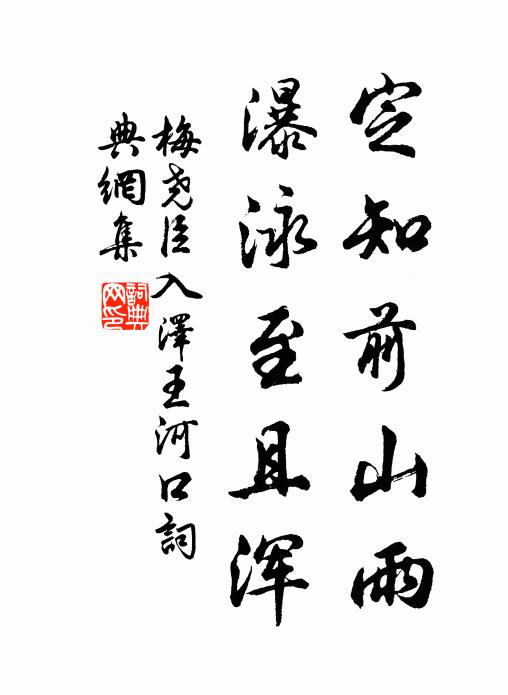 定知前山雨
瀑泳至且浑
梅尧臣入澤王河口詞
典網集
詞典網印